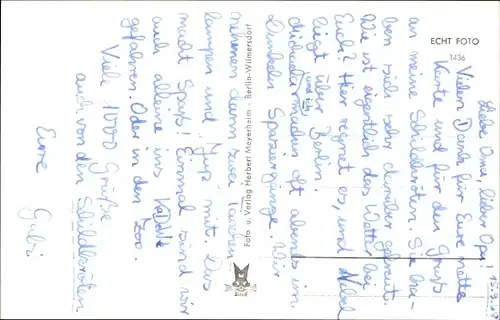 Liebe Oma, lieber Opa!
Vielen Dank für Eure nette
Karte und für den Gruß
an meine Schildkröten. Sie ha-
ben sich sehr darüber gefreut.
Wie ist eigentlich das Wetter bei
Euch? Hier regnet es, und Nebel
liegt über Berlin.
und ich
machen oft abends im
Dunkeln Spaziergänge. Wir
nehmen dann zwei Taschen
lampen und mit. Das
macht Spaß! Einmal sind wir
auch alleine ins KaDeWe
gefahren. Oder in den Zoo.
Viele 1000 Grüße
auch von den Schildkröten
Eure
Gabi
ECHT FOTO
1436
Foto u. Verlag Herbert Meyerheim - Berlin-Wilmersdorf